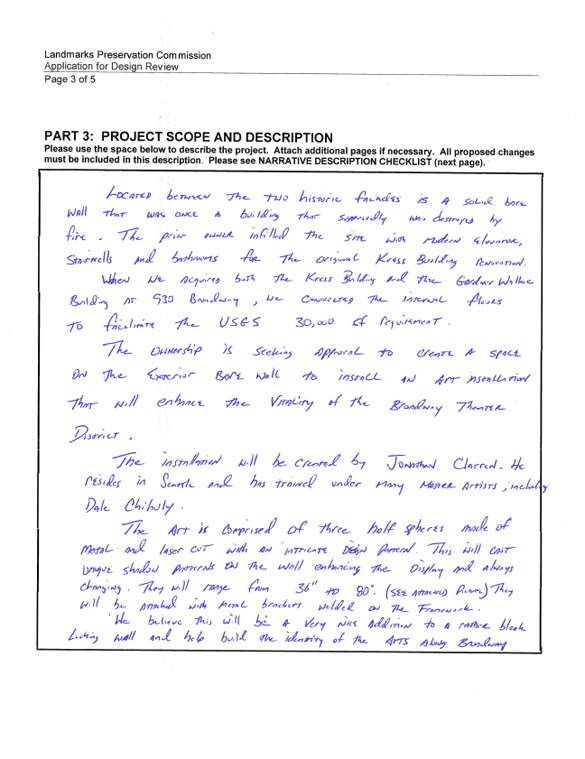 Landmarks Preservation Commission
Application for Design Review
Page 3 of 5
PART 3: PROJECT SCOPE AND DESCRIPTION
Please use the space below to describe the project. Attach additional pages if necessary. All proposed changes
must be included in this description. Please see NARRATIVE DESCRIPTION CHECKLIST (next page).
Located between the two historic facades is a solid bare
wall that was once a building that supposedly was destroyed by
fire. The prior owner infilled the site with modern elevator,
stairwells and bathrooms for the original Kress Building renovation.
When we acquired both the Kress Building and the Gardner Wallace
Building at 930 Broadway, we connected the internal floors
to facilitate the USGS 30,000 sf requirement.
The ownership is seeking approval to create a space
on the exterior bare wall to install an art installation
that will enhance the vitality of the Broadway Theater
District.
The installation will be created by Jonathan Clarren. He
resides in Seattle and has trained under many master artists, including
Dale Chihuly.
The art is comprised of three half spheres made of
metal and laser cut with an intricate design pattern. This will cast
unique shadow patterns on the wall enhancing the display and always
changing. They will range from 36" to 80". (see attached picture) They
will be attached with metal brackets welded on the framework.
We believe this will be a very nice addition to a rather blank
looking wall and help build the identity of the arts along Broadway